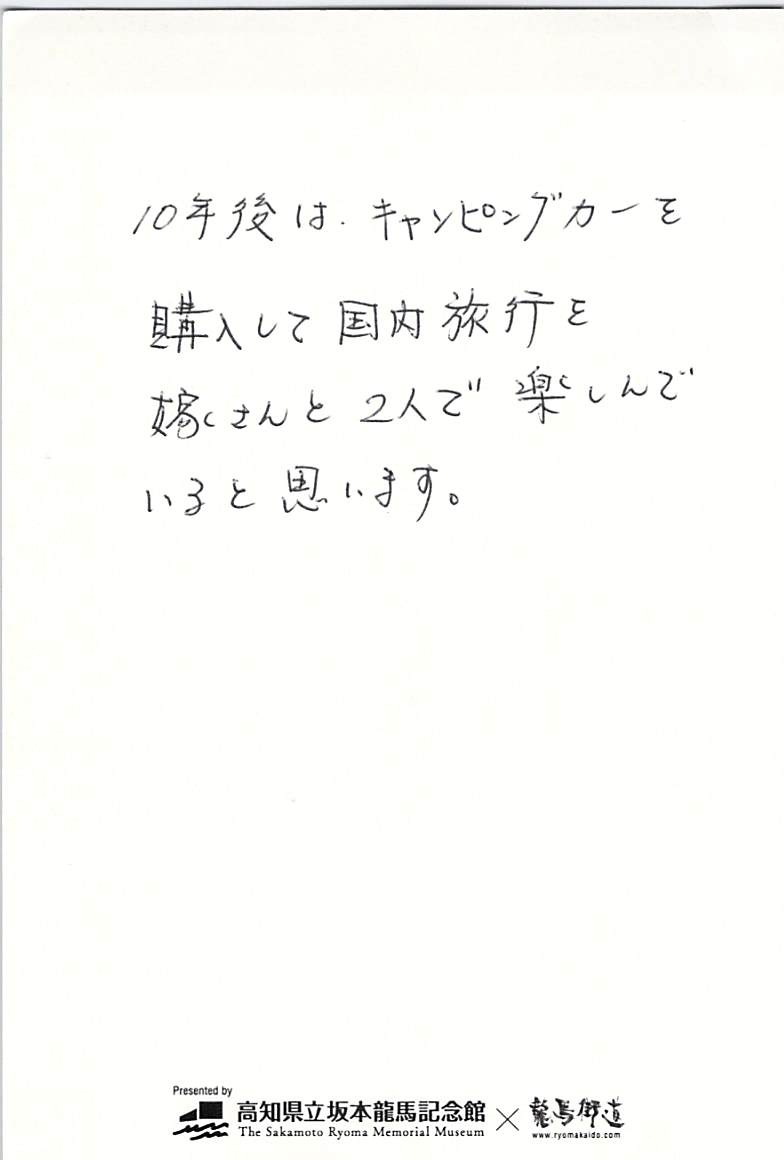 10年後は、キャンピングカーを
購入して国内旅行を
嫁さんと2人で楽しんで
いると思います。
Presented by
高知県立坂本龍馬記念館
The Sakamoto Ryoma Memorial Museum
×
龍馬街道
www.ryomakaido.com